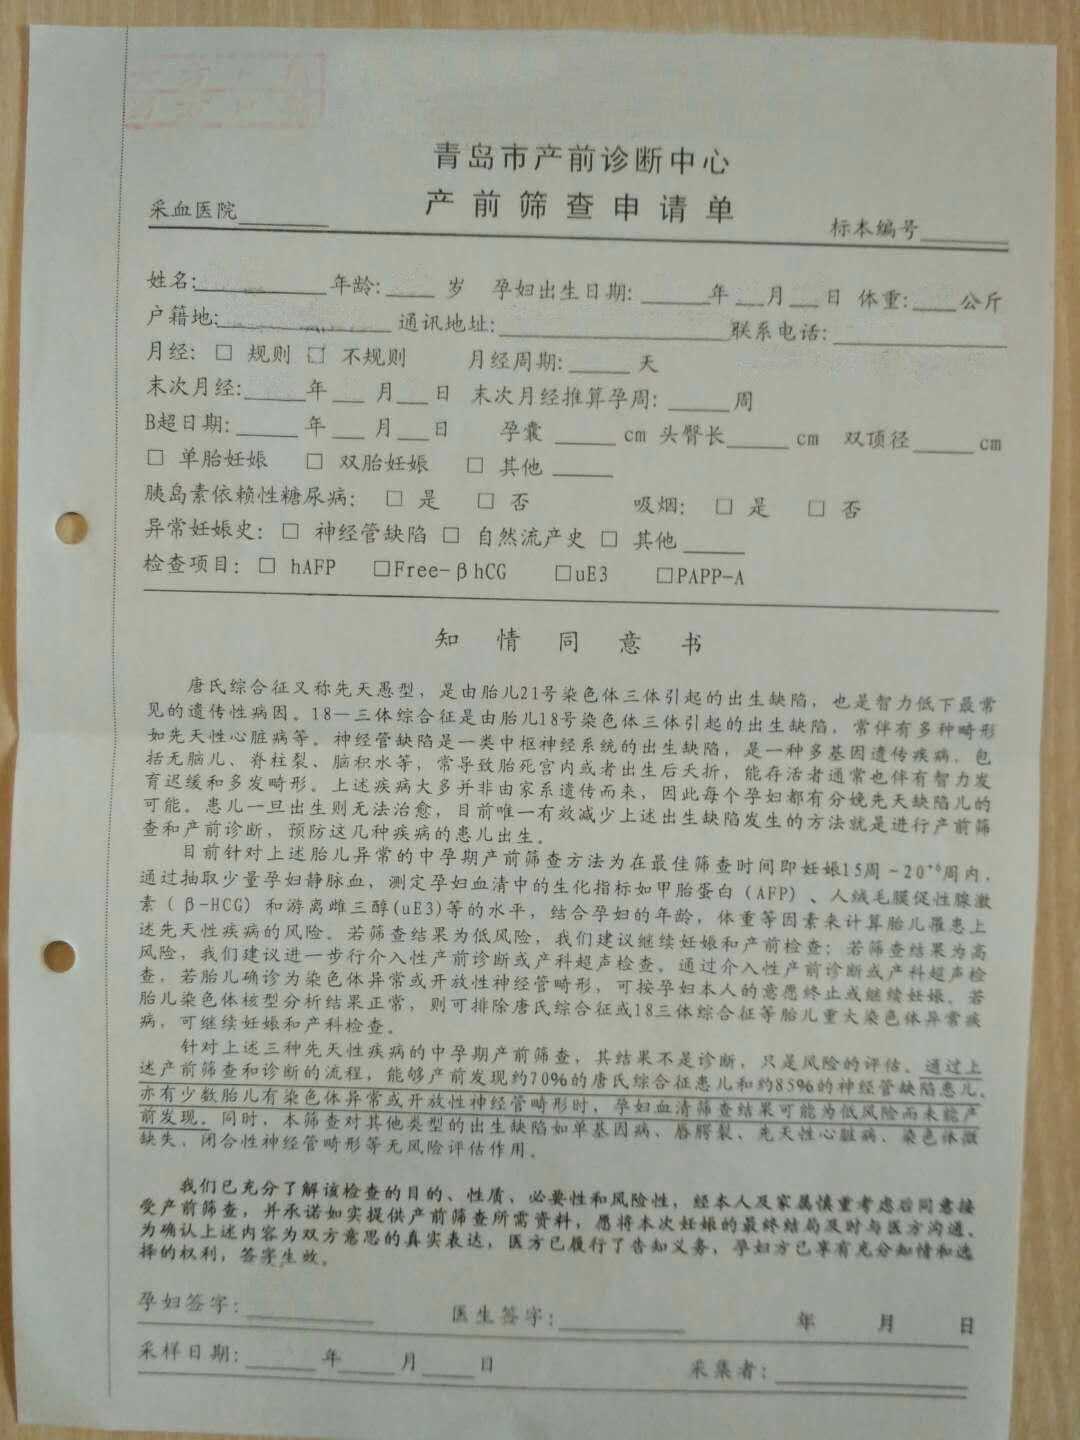 青岛市产前诊断中心
产前筛查申请单
采血医院______ 标本编号______
姓名:______年龄:____岁 孕妇出生日期:____年__月__日 体重:___公斤
户籍地:______ 通讯地址:______联系电话:______
月经: □ 规则 □ 不规则 月经周期:_____天
末次月经:_____年___月___日 末次月经推算孕周:_____周
B超日期:_____年___月___日 孕囊_____cm 头臀长_____cm 双顶径_____cm
□ 单胎妊娠 □ 双胎妊娠 □ 其他_____
胰岛素依赖性糖尿病: □ 是 □ 否 吸烟: □ 是 □ 否
异常妊娠史: □ 神经管缺陷 □ 自然流产史 □ 其他_____
检查项目: □ hAFP □Free-βhCG □uE3 □PAPP-A
知情同意书
唐氏综合征又称先天愚型，是由胎儿21号染色体三体引起的出生缺陷，也是智力低下最常
见的遗传性病因。18—三体综合征是由胎儿18号染色体三体引起的出生缺陷，常伴有多种畸形
如先天性心脏病等。神经管缺陷是一类中枢神经系统的出生缺陷，是一种多基因遗传疾病，包
括无脑儿、脊柱裂、脑积水等，常导致胎死宫内或者出生后夭折，能存活者通常也伴有智力发
育迟缓和多发畸形。上述疾病大多并非由家系遗传而来，因此每个孕妇都有分娩先天缺陷儿的
可能。患儿一旦出生则无法治愈，目前唯一有效减少上述出生缺陷发生的方法就是进行产前筛
查和产前诊断，预防这几种疾病的患儿出生。
目前针对上述胎儿异常的中孕期产前筛查方法为在最佳筛查时间即妊娠15周～20⁺⁶周内，
通过抽取少量孕妇静脉血，测定孕妇血清中的生化指标如甲胎蛋白(AFP)、人绒毛膜促性腺激
素(β-HCG)和游离雌三醇(uE3)等的水平，结合孕妇的年龄，体重等因素来计算胎儿罹患上
述先天性疾病的风险。若筛查结果为低风险，我们建议继续妊娠和产前检查；若筛查结果为高
风险，我们建议进一步行介入性产前诊断或产科超声检查。通过介入性产前诊断或产科超声检
查，若胎儿确诊为染色体异常或开放性神经管畸形，可按孕妇本人的意愿终止或继续妊娠。若
胎儿染色体核型分析结果正常，则可排除唐氏综合征或18三体综合征等胎儿重大染色体异常疾
病，可继续妊娠和产科检查。
针对上述三种先天性疾病的中孕期产前筛查，其结果不是诊断，只是风险的评估。通过上
述产前筛查和诊断的流程，能够产前发现约70%的唐氏综合征患儿和约85%的神经管缺陷患儿。
亦有少数胎儿有染色体异常或开放性神经管畸形时，孕妇血清筛查结果可能为低风险而未能产
前发现。同时，本筛查对其他类型的出生缺陷如单基因病、唇腭裂、先天性心脏病、染色体微
缺失、闭合性神经管畸形等无风险评估作用。
我们已充分了解该检查的目的、性质、必要性和风险性，经本人及家属慎重考虑后同意接
受产前筛查，并承诺如实提供产前筛查所需资料，愿将本次妊娠的最终结局及时与医方沟通。
为确认上述内容为双方意思的真实表达，医方已履行了告知义务，孕妇方已享有充分知情和选
择的权利，签字生效。
孕妇签字:______ 医生签字:______ 年 月 日
采样日期:____年___月___日 采集者:______